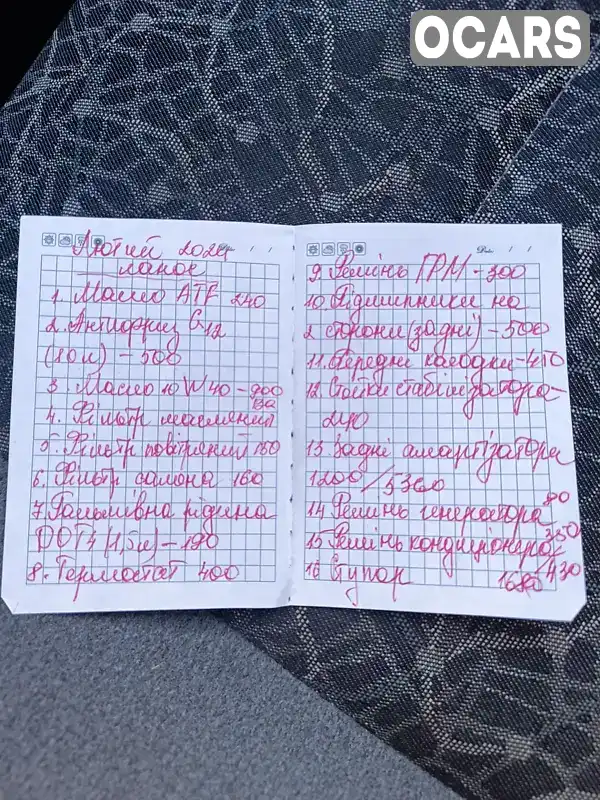 OCARS
Лютий 2024
ланос
1. Масло ATF 240
2. Антифриз G12
(10л) – 500
3. Масло 10W40 – 900
4. Фільтр масляний
5. Фільтр повітряний 150
6. Фільтр салона 160
7. Гальмівна рідина
DOT4 (1,5л) – 190
8. Термостат 400
Date
9. Ремінь ГРМ –
10. Підшипники на
2 сторони (задні) – 500
11. Передні колодки – 450
12. Стойки стабілізатора –
240
13. Задні амартізатори
1200/5360
14 Ремінь генератора
15 Ремінь кондиціонера
350
16 Ступор 1680 430